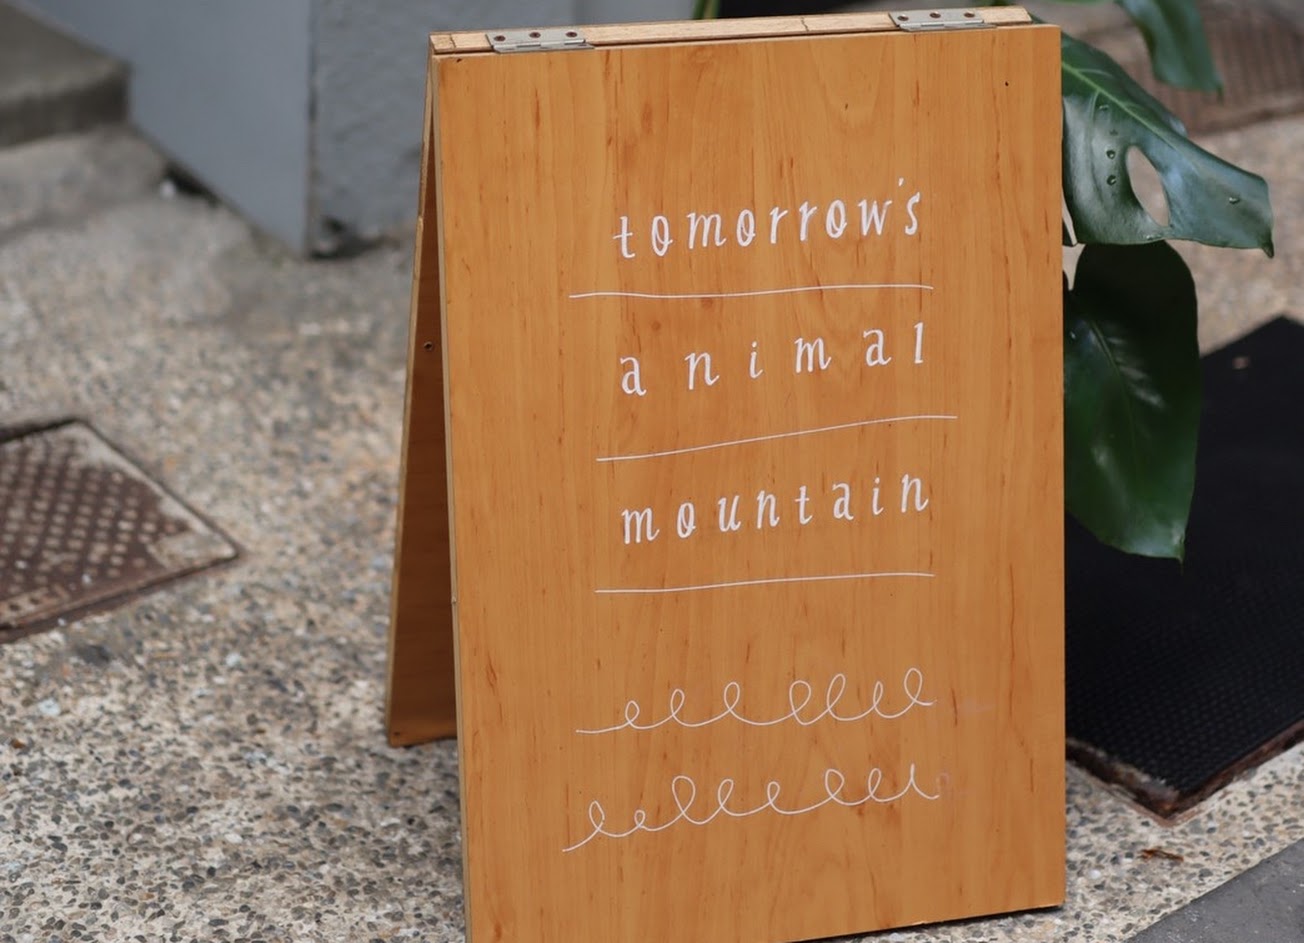 tomorrow's
animal
mountain